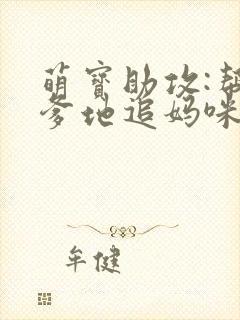 萌宝助攻:帮
爹地追妈咪
牟健